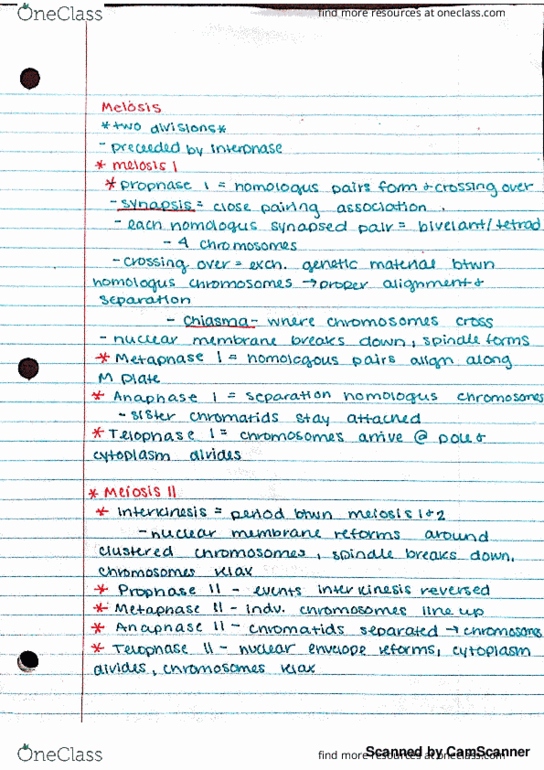 OneClass
find more resources at oneclass.com
Meiosis
*two divisions*
- preceeded by interphase
* meiosis I
* prophase I = homologus pairs form + crossing over
- synapsis = close pairing association.
- each homologus synapsed pair = bivelant/tetrad
- 4 chromosomes
- crossing over = exch. genetic material btwn
homologus chromosomes → proper alignment +
separation
- Chiasma - where chromosomes cross
- nuclear membrane breaks down, spindle forms
* Metaphase I = homologous pairs align along
M plate
* Anaphase I = separation homologus chromosomes
- sister chromatids stay attached
* Telophase I = chromosomes arrive @ pole +
cytoplasm divides
* Meiosis II
* Interkinesis = period btwn meiosis 1+2
- nuclear membrane reforms around
clustered chromosomes, spindle breaks down,
chromosomes relax
* Prophase II - events interkinesis reversed
* Metaphase II - indv. chromosomes line up
* Anaphase II - chromatids separated → chromosomes
* Telophase II - nuclear envelope reforms, cytoplasm
divides, chromosomes relax
OneClass
find more resources at oneclass.com
Scanned by CamScanner